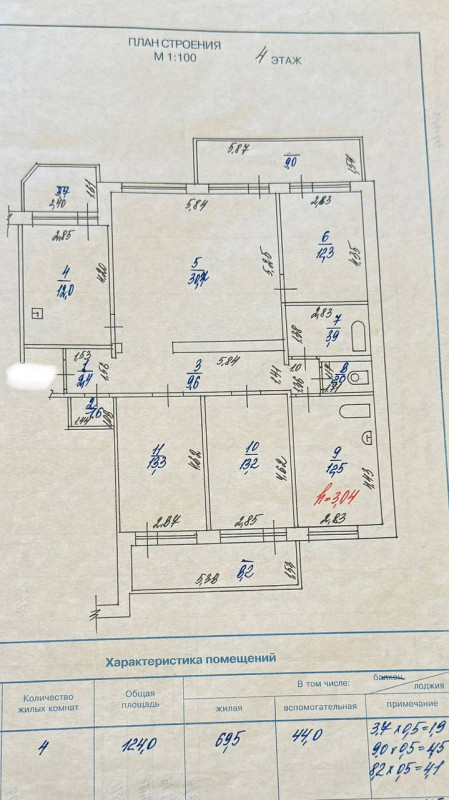 ПЛАН СТРОЕНИЯ
М 1:100
4 ЭТАЖ
5,87
9,0
1,54
3,7
2,40
1,61
5,84
2,83
2,85
4
12,0
4,20
5
30,7
5,25
6
12,3
4,35
2,83
7
3,9
1,38
1,53
1
2,4
1,56
5,84
3
9,6
1,41
8
2,0
2
1,6
1,44
11
13,3
4,62
2,87
10
13,2
4,62
2,85
9
12,5
4,43
h=3,04
2,83
5,38
8,2
1,53
Характеристика помещений
Количество жилых комнат
Общая площадь
В том числе:
балкон,
лоджия
жилая
вспомогательная
примечание
4
124,0
69,5
44,0
3,7 x 0,5 = 1,9
9,0 x 0,5 = 4,5
8,2 x 0,5 = 4,1